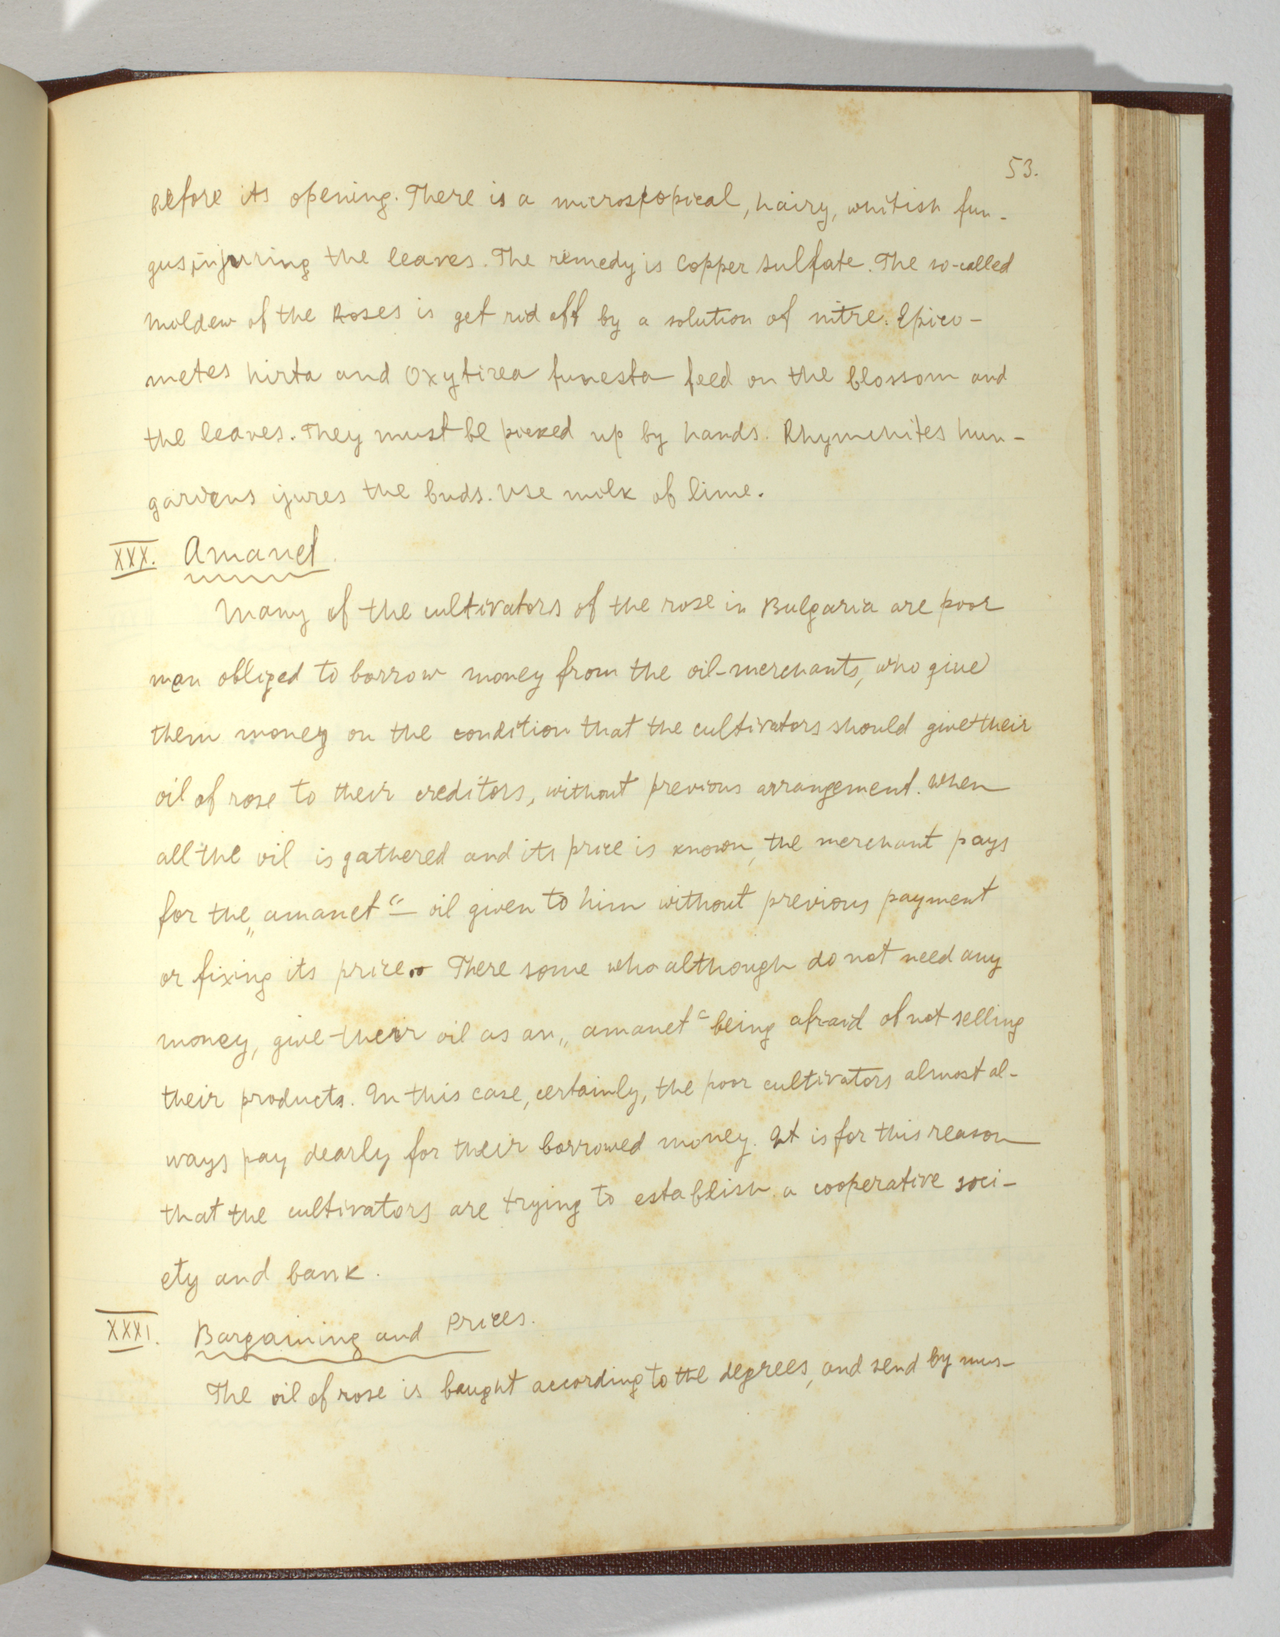 53.
before its opening. There is a microscopical, hairy, whitish fun-
gus injuring the leaves. The remedy is Copper sulfate. The so-called
Moldew of the Roses is get rid off by a solution of nitre. Epico-
metes hirta and Oxytirea funesta feed on the blossom and
the leaves. They must be picked up by hands. Rhymchites hun-
garicus ijures the buds. Use milk of lime.
XXX. Amanet.
Many of the cultivators of the rose in Bulgaria are poor
men obliged to borrow money from the oil-merchants, who give
them money on the condition that the cultivators should give their
oil of rose to their creditors, without previous arrangement. When
all the oil is gathered and its price is known, the merchant pays
for the „amanet“ – oil given to him without previous payment
or fixing its price. There some who although do not need any
money, give their oil as an „amanet“ being afraid of not selling
their products. In this case, certainly, the poor cultivators almost al-
ways pay dearly for their borrowed money. It is for this reason
that the cultivators are trying to establish a cooperative soci-
ety and bank.
XXXI. Bargaining and Prices.
The oil of rose is baught according to the degrees, and send by mus-